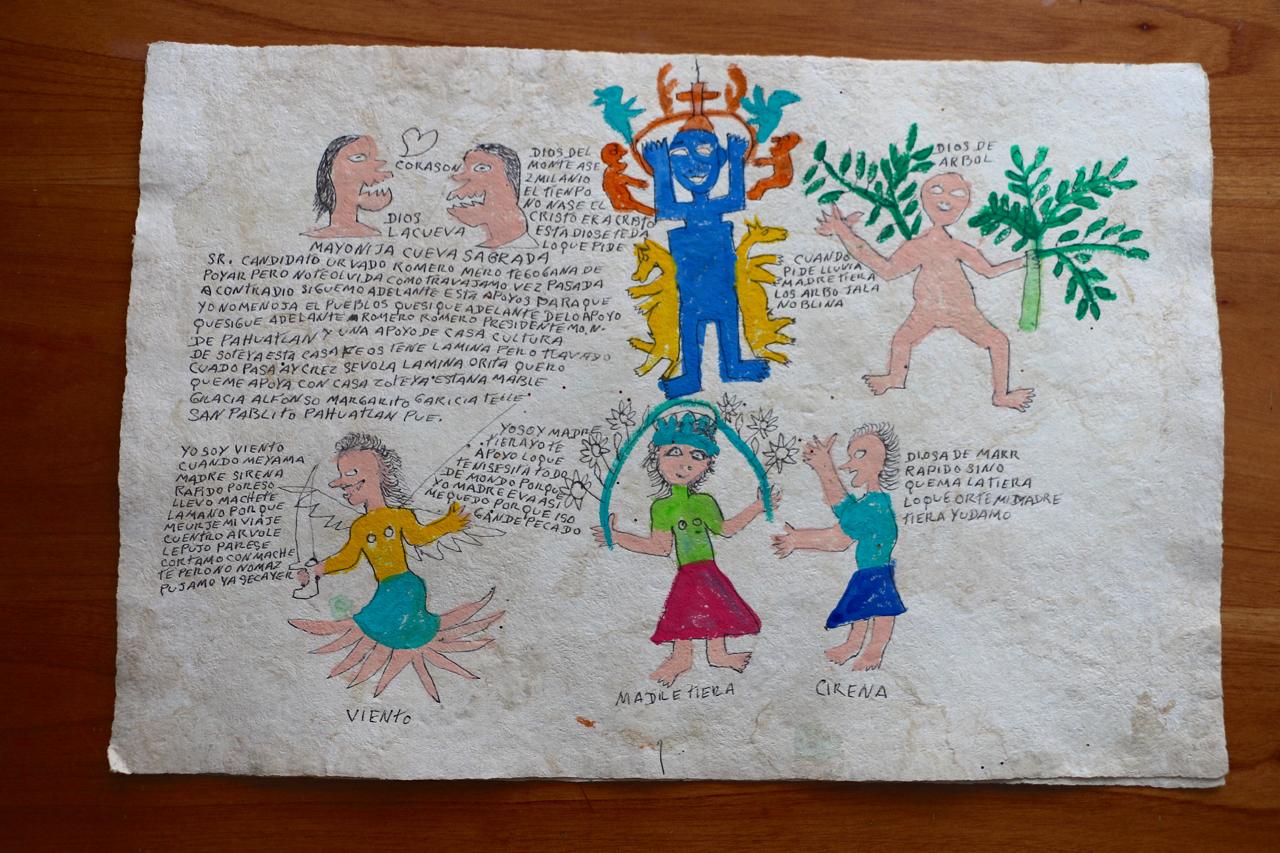 CORASON
DIOS
LACUEVA
DIOS DEL
MONTE ASE
2 MILANIO
EL TIENPO
NO NASE EL
CRISTO ERA CRISTO
ESTA DIOSE TEDA
LO QUE PIDE
DIOS DE
ARBOL
MAYONIJA CUEVA SAGRADA
SR. CANDIDATO URVADO ROMERO MERO TEGOGANA DE
POYAR PERO NOTEOLVIDA COMO TRAVAJAMO VEZ PASADA
ACONTRADIO SIGUEMO ADELANTE ESTA APOYOS PARA QUE
YO NOMENOJA EL PUEBLOS QUESIQUE ADELANTE DELO APOYO
QUESIGUE ADELANTE ROMERO ROMERO PRESIDENTE MO.N.
DE PAHUATLAN Y UNA APOYO DE CASA CULTURA
DE SOTEYA ESTA CASA TENE LAMINA PERO TLAVADO
CUADO PASA AY CREZ SEVOLA LAMINA ORITA QUERO
QUEME APOYA CON CASA ZOTEYA ESTANA MABLE
GLACIA ALFONSO MARGARITO GARICIA TEILE
SAN PABLITO PAHUATLAN PUE.
CUANDO
PIDE LLUVIA
MADRETIERA
LOS ARBO JALA
NOBLINA
YO SOY VIENTO
CUANDO MEYAMA
MADRE SIRENA
RAPIDO POR ESO
LLEVO MACHETE
LAMANO PORQUE
MEURJE MI VIAJE
CUENTRO ARVOLE
LEPUJO PARESE
CORTAMO CON MACHE
TE PERO NO NOMAZ
PUJAMO YA SECAYER
YO SOY MADRE
TIERAYOTE
APOYO LOQUE
TENISESITA TODO
DE MONDO PORQUE
YO MADRE EVA ASI
MEQUEDO PORQUE ISO
GANDE PECADO
DIOSA DE MARR
RAPIDO SINO
QUEMA LA TIERA
LO QUE ORTE MI MADRE
TIERA YUDAMO
VIENTO
MADRE TIERA
CIRENA
1